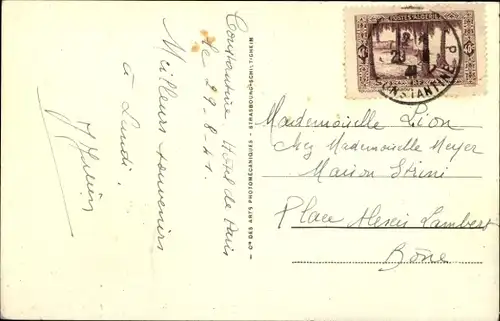 Constantine Hôtel de Paris
Le 29-8-41.
Meilleurs souvenirs
à Lundi.
Cie DES ARTS PHOTOMÉCANIQUES - STRASBOURG-SCHILTIGHEIM
POSTES ALGERIE
CONSTANTINE
Mademoiselle Lion
chez Mademoiselle Meyer
Maison Strini
Place Alexis Lambert
Bône